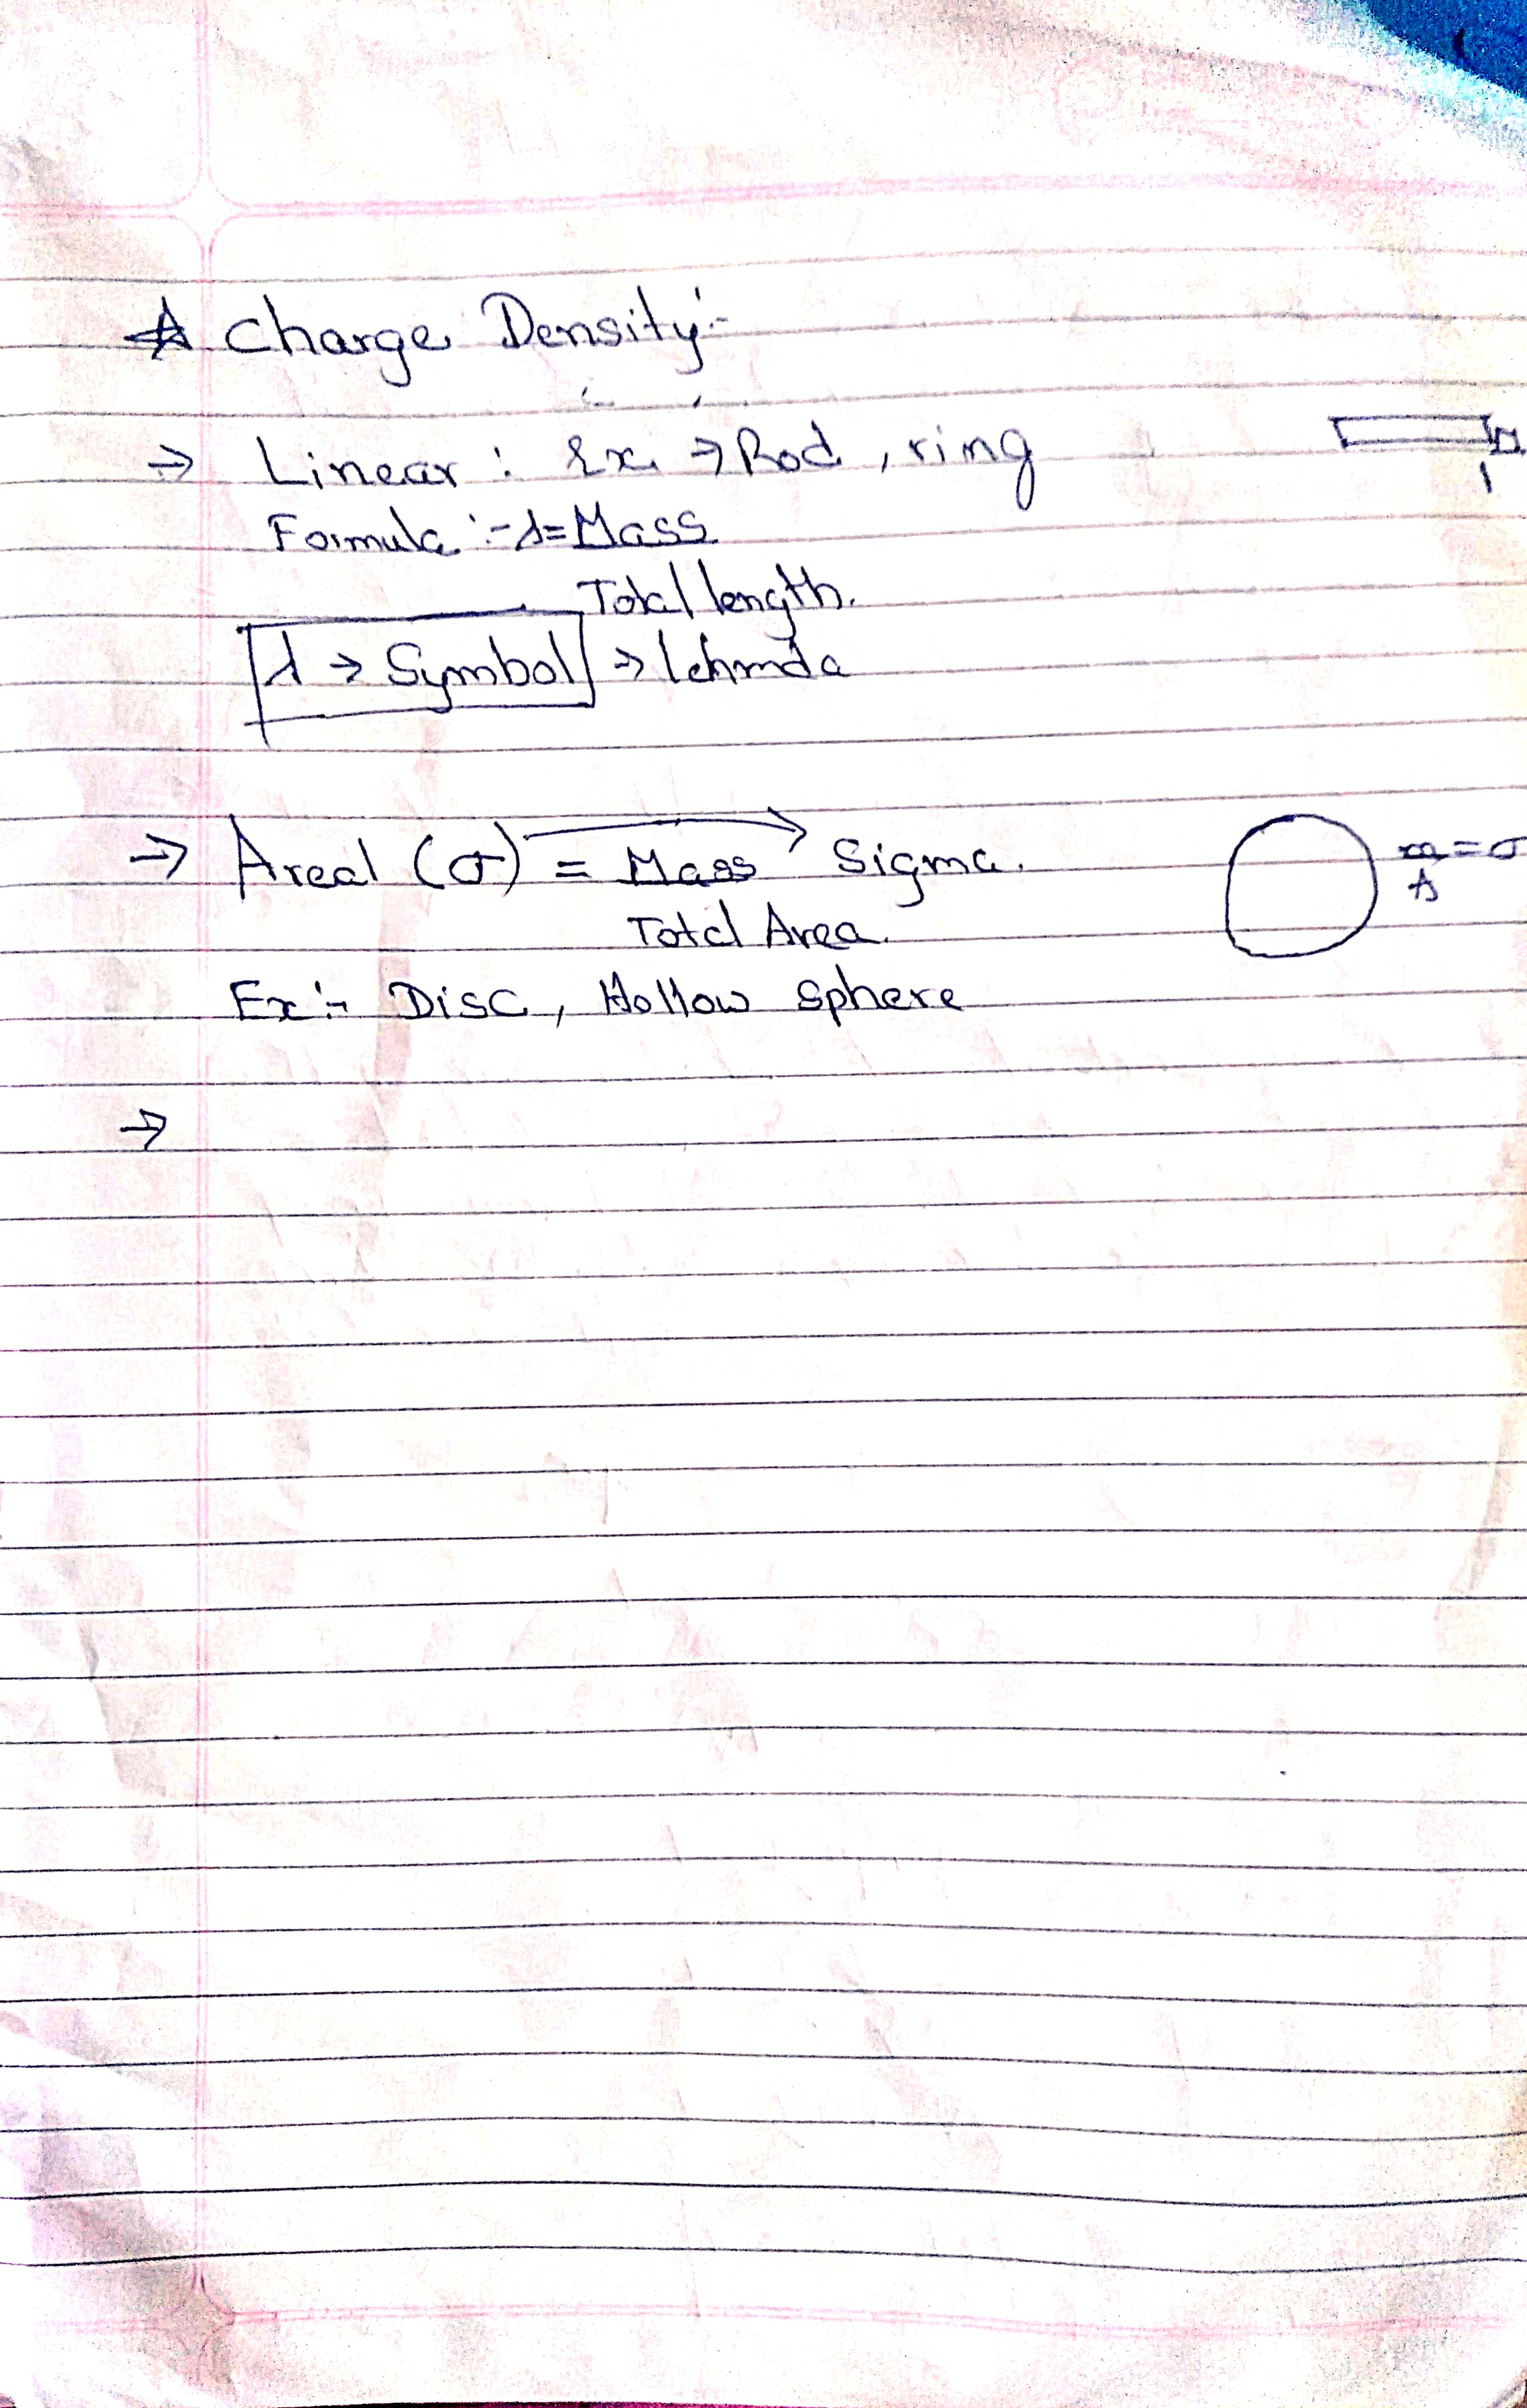 ☆ Charge Density :-
→ Linear : Ex → Rod, ring
Formula :- λ = Mass
Total length.
λ → Symbol → lehmda
→ Areal (σ) = Mass → Sigma.
Total Area.
Ex :- Disc, Hollow sphere
m = σ
A
→